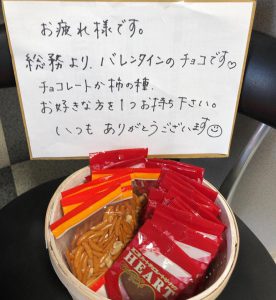 お疲れ様です。
総務より、バレンタインのチョコです♡
チョコレートか柿の種、
お好きな方を1つお持ち下さい。
いつも ありがとうございます☺
HEART